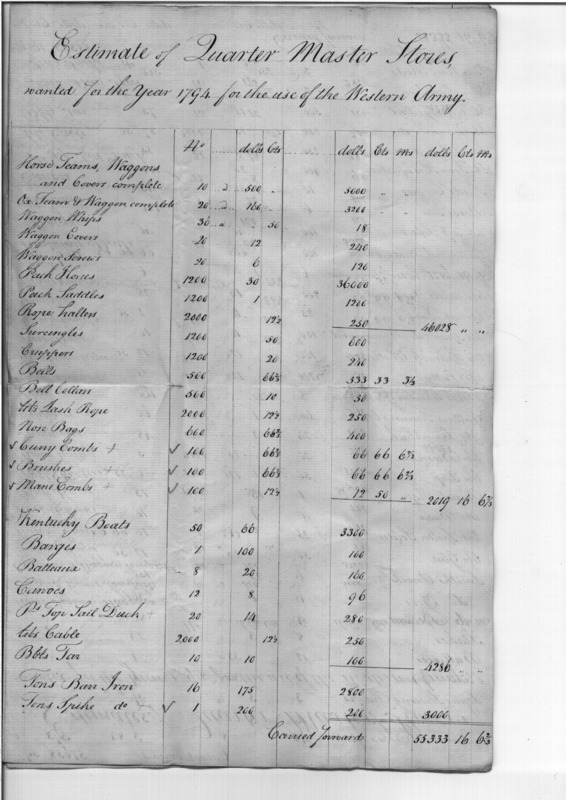 Estimate of Quarter Master Stores,
wanted for the Year 1794 for the use of the Western Army.
No dolls Cts dolls Cts Ms dolls Cts Ms
Horse Teams, Waggons
and Covers complete 10 a 500 5000 "
Ox Team & Waggon complete 20 a 160 3200 "
Waggon Whips 36 a 50 18
Waggon Covers 20 12 240
Waggon Screws 20 6 120
Pack Horses 1200 30 36000
Pack Saddles 1200 1 1200
Rope halters 2000 12½ 250 46028 " "
Surcingles 1200 50 600
Cruppers 1200 20 240
Bells 500 66⅔ 333 33 3⅓
Bell Collars 500 10 50
lbs Lash Rope 2000 12½ 250
Nose Bags 600 66⅔ 400
√ Curry Combs + √ 100 66⅔ 66 66 6⅔
√ Brushes + √ 100 66⅔ 66 66 6⅔
√ Mane Combs + √ 100 12½ 12 50 " 2019 16 6⅔
Kentucky Boats 50 66 3300
Barges 1 100 100
Batteaux 8 20 160
Canoes 12 8 96
Ps Top Sail Duck 20 14 280
lbs Cable 2,000 12½ 250
Bbls Tar 10 10 100 4286 " "
Tons Barr Iron 16 175 2800
Tons Spike do √ 1 200 200 3000
Carried forward 55333 16 6⅔